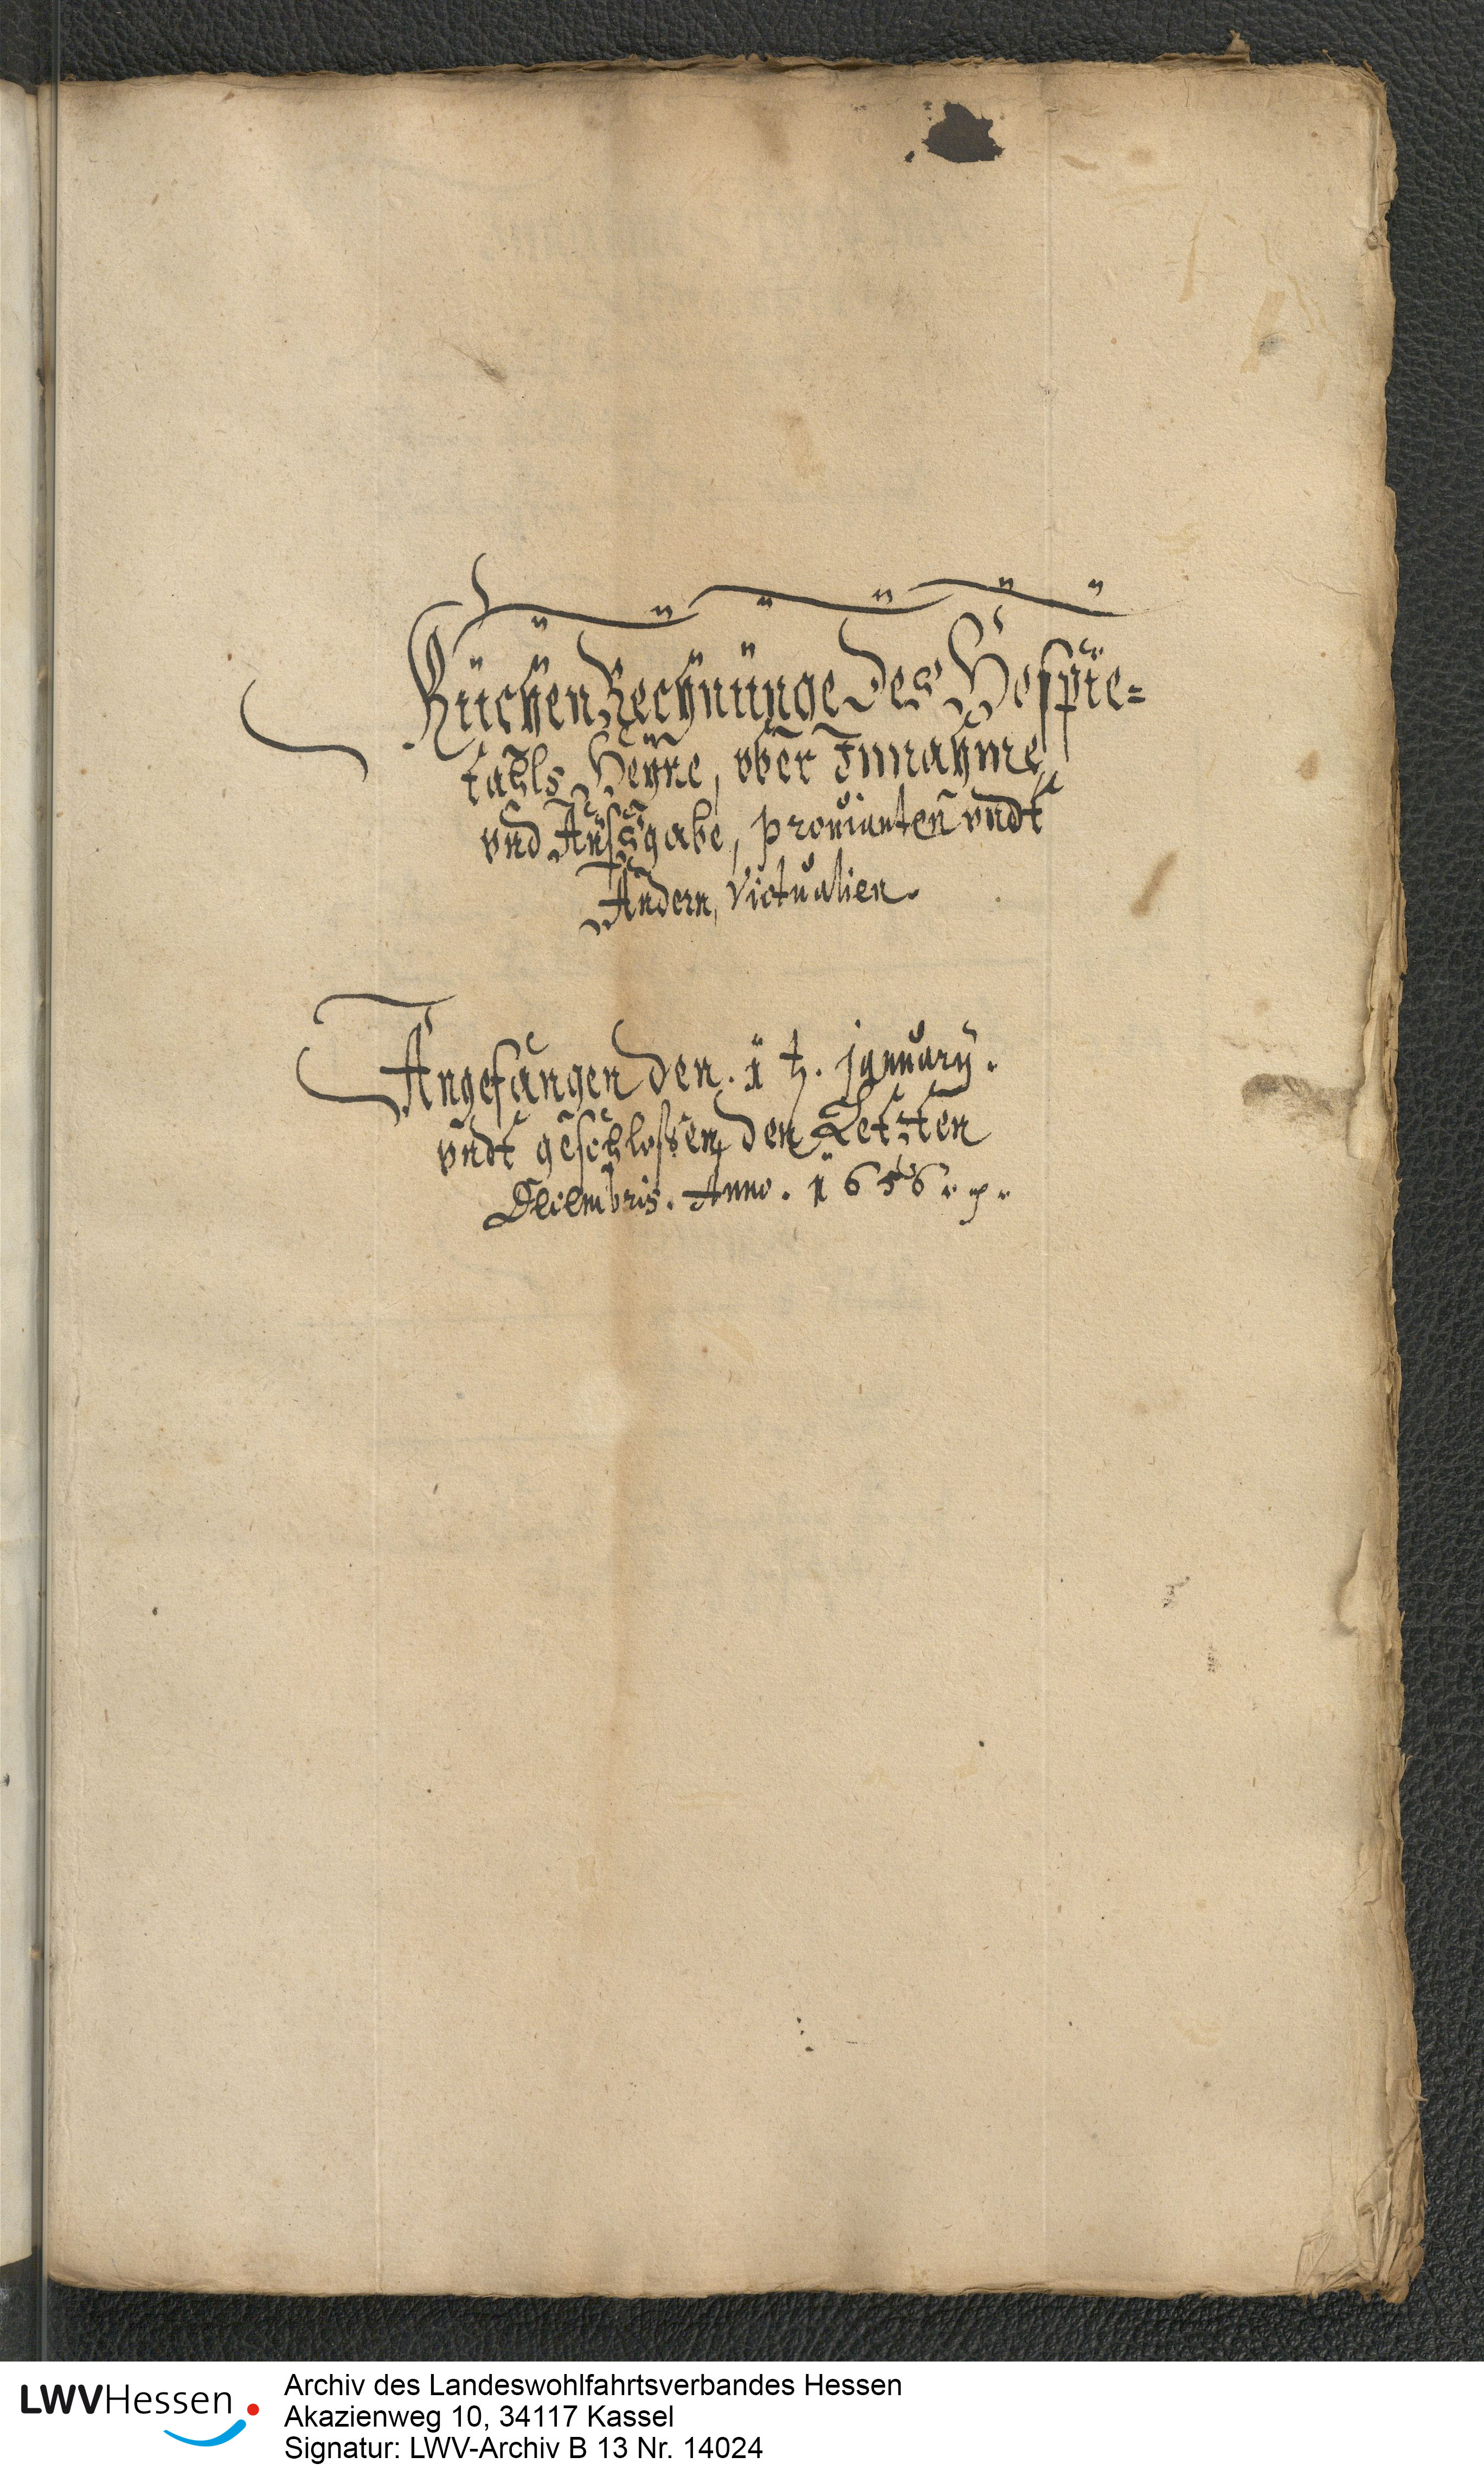 Küchen Rechnunge des Hospie=
tahls Heyne, vber Innahme
vnd Außgabe, provianten vndt
Andern, Victualien.
Angefangen den. 1 t. January.
vndt geschloßen den Letzten
Decembris. Anno. 1656. p.
LWVHessen
Archiv des Landeswohlfahrtsverbandes Hessen
Akazienweg 10, 34117 Kassel
Signatur: LWV-Archiv B 13 Nr. 14024